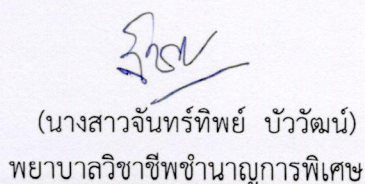 (นางสาวจันทร์ทิพย์ บัววัฒน์)
พยาบาลวิชาชีพชำนาญการพิเศษ